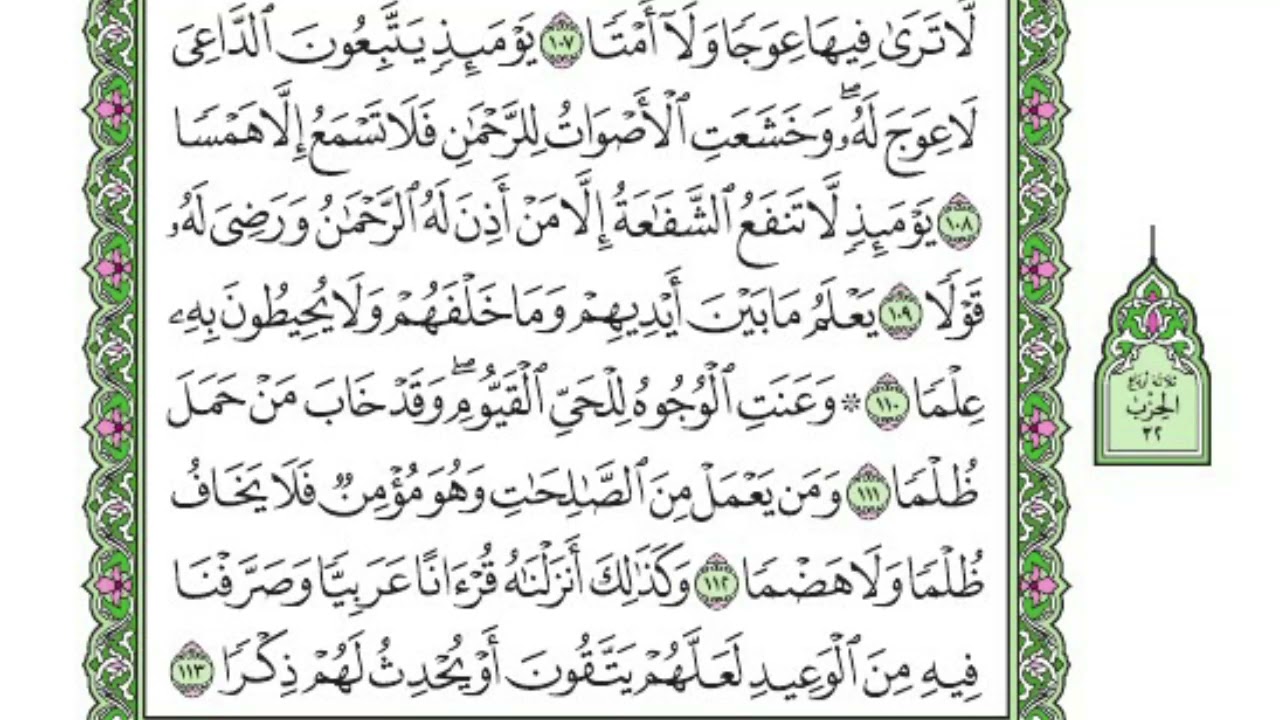 لَّا تَرَىٰ فِيهَا عِوَجًا وَلَآ أَمْتًا ١٠٧ يَوْمَئِذٍ يَتَّبِعُونَ ٱلدَّاعِىَ
لَا عِوَجَ لَهُۥۖ وَخَشَعَتِ ٱلْأَصْوَاتُ لِلرَّحْمَٰنِ فَلَا تَسْمَعُ إِلَّا هَمْسًا
١٠٨ يَوْمَئِذٍ لَّا تَنفَعُ ٱلشَّفَٰعَةُ إِلَّا مَنْ أَذِنَ لَهُ ٱلرَّحْمَٰنُ وَرَضِىَ لَهُۥ
قَوْلًا ١٠٩ يَعْلَمُ مَا بَيْنَ أَيْدِيهِمْ وَمَا خَلْفَهُمْ وَلَا يُحِيطُونَ بِهِۦ
عِلْمًا ١١٠ ۞ وَعَنَتِ ٱلْوُجُوهُ لِلْحَىِّ ٱلْقَيُّومِۖ وَقَدْ خَابَ مَنْ حَمَلَ
ظُلْمًا ١١١ وَمَن يَعْمَلْ مِنَ ٱلصَّٰلِحَٰتِ وَهُوَ مُؤْمِنٌ فَلَا يَخَافُ
ظُلْمًا وَلَا هَضْمًا ١١٢ وَكَذَٰلِكَ أَنزَلْنَٰهُ قُرْءَانًا عَرَبِيًّا وَصَرَّفْنَا
فِيهِ مِنَ ٱلْوَعِيدِ لَعَلَّهُمْ يَتَّقُونَ أَوْ يُحْدِثُ لَهُمْ ذِكْرًا ١١٣
ثلاثة أرباع
الحزب
٣٢